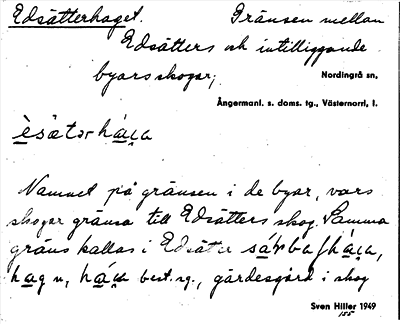 Edsätterhaget. Gränsen mellan
Edsätters och intilliggande
byars skogar;
Nordingrå sn,
Ångermanl. s. doms. tg., Västernorrl. l.
èsätərhá
Namnet på gränsen i de byar, vars
skogar gränsa till Edsätters skog. Samma
gräns kallas i Edsäter
hag n, best. sg., gärdesgård i skog
Sven Hiller 1949
155